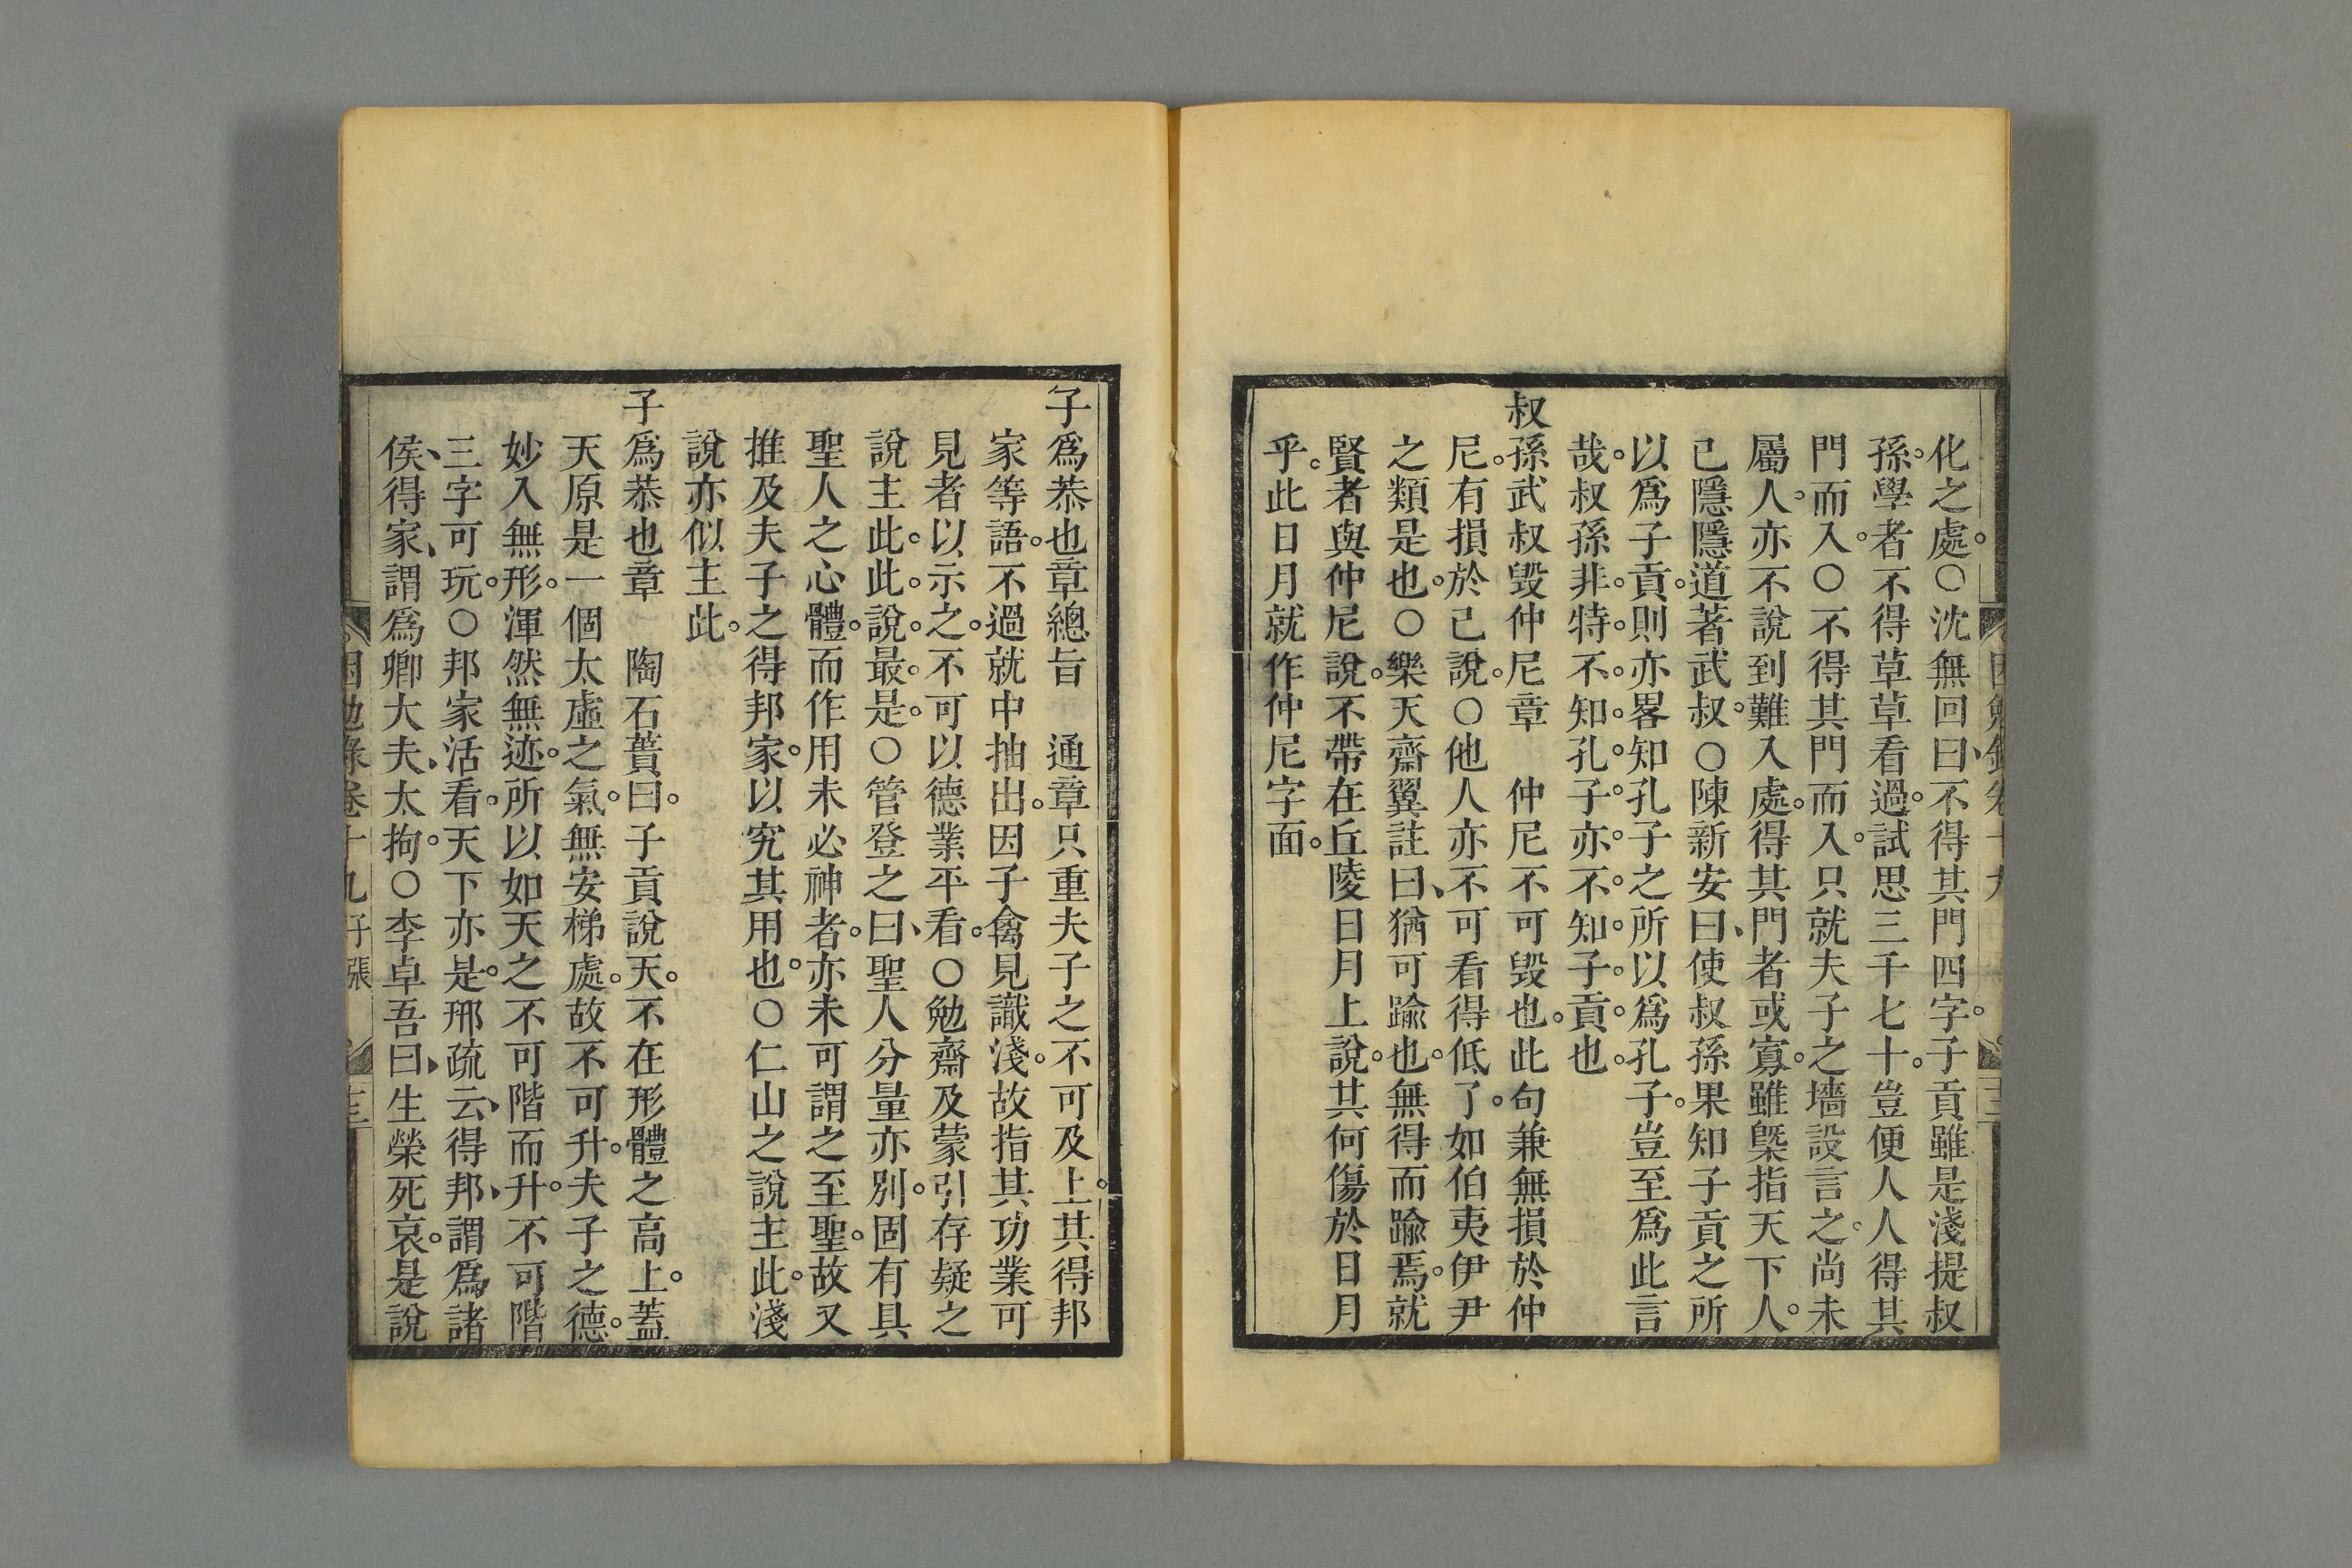 化之處。○沈無回曰、不得其門四字。子貢雖是淺提叔
孫。學者不得草草看過。試思三千七十。豈便人人得其
門而入。○不得其門而入。只就夫子之墻設言之。尚未
屬人。亦不說到難入處。得其門者或寡。雖槩指天下人。
已隱隱道著武叔。○陳新安曰、使叔孫果知子貢之所
以爲子貢。則亦畧知孔子之所以爲孔子。豈至爲此言
哉。叔孫非特不知孔子。亦不知子貢也。
叔孫武叔毀仲尼章　仲尼不可毀也。此句兼無損於仲
尼。有損於己說。○他人亦不可看得低了。如伯夷伊尹
之類是也。○樂天齋翼註曰、猶可踰也。無得而踰焉。就
賢者與仲尼說。不帶在丘陵日月上說。其何傷於日月
乎。此日月就作仲尼字面。
子爲恭也章總旨　通章只重夫子之不可及上。其得邦
家等語。不過就中抽出。因子禽見識淺。故指其功業可
見者以示之。不可以德業平看。○勉齋及蒙引存疑之
說主此。此說最是。○管登之曰、聖人分量亦別。固有具
聖人之心體。而作用未必神者。亦未可謂之至聖。故又
推及夫子之得邦家。以究其用也。○仁山之說主此。淺
說亦似主此。
子爲恭也章　陶石簣曰。子貢說天。不在形體之高上。蓋
天原是一個太虛之氣。無安梯處。故不可升。夫子之德。
妙入無形。渾然無迹。所以如天之不可階而升。不可階
三字可玩。○邦家活看。天下亦是。邢疏云、得邦、謂爲諸
侯、得家、謂爲卿大夫、太拘。○李卓吾曰、生榮死哀。是說
困勉錄卷十九 子張 十三